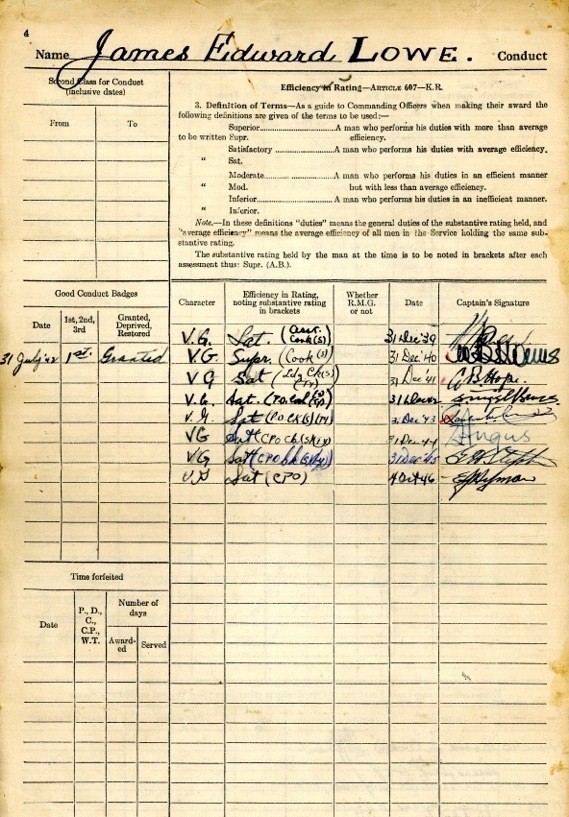 4
Name James Edward LOWE. Conduct
Second Class for Conduct
(inclusive dates)
From To
Efficiency in Rating—ARTICLE 607—K.R.
3. Definition of Terms—As a guide to Commanding Officers when making their award the
following definitions are given of the terms to be used:—
Superior..............................A man who performs his duties with more than average
to be written Supr. efficiency.
Satisfactory ........................A man who performs his duties with average efficiency.
" Sat.
Moderate..............................A man who performs his duties in an efficient manner
" Mod. but with less than average efficiency.
Inferior................................A man who performs his duties in an inefficient manner.
" Inferior.
Note.—In these definitions "duties" means the general duties of the substantive rating held, and
"average efficiency" means the average efficiency of all men in the Service holding the same sub-
stantive rating.
The substantive rating held by the man at the time is to be noted in brackets after each
assessment thus: Supr. (A.B.).
Good Conduct Badges
Date
1st, 2nd,
3rd
Granted,
Deprived,
Restored
31 July '42 1st. Granted
Character
Efficiency in Rating,
noting substantive rating
in brackets
Whether
R.M.G.
or not
Date
Captain's Signature
V.G. Sat. (Asst. Cook(S) 31 Dec '39
V.G. Supr. (Cook(S) 31 Dec '40
V G Sat (Ldg Ck(S) 31 Dec '41 Hope.
V.G. Sat. 
V.G. Sat (PO Ck(S) Dec '43
VG Sat (CPO Ck(S) 31 Dec 44 Angus
VG Sat (CPO 31 Dec '45
V.G Sat (CPO) 4 Oct 46 Hyman
Time forfeited
Date
P., D.,
C.,
C.P.,
W.T.
Number of
days
Award-
ed
Served